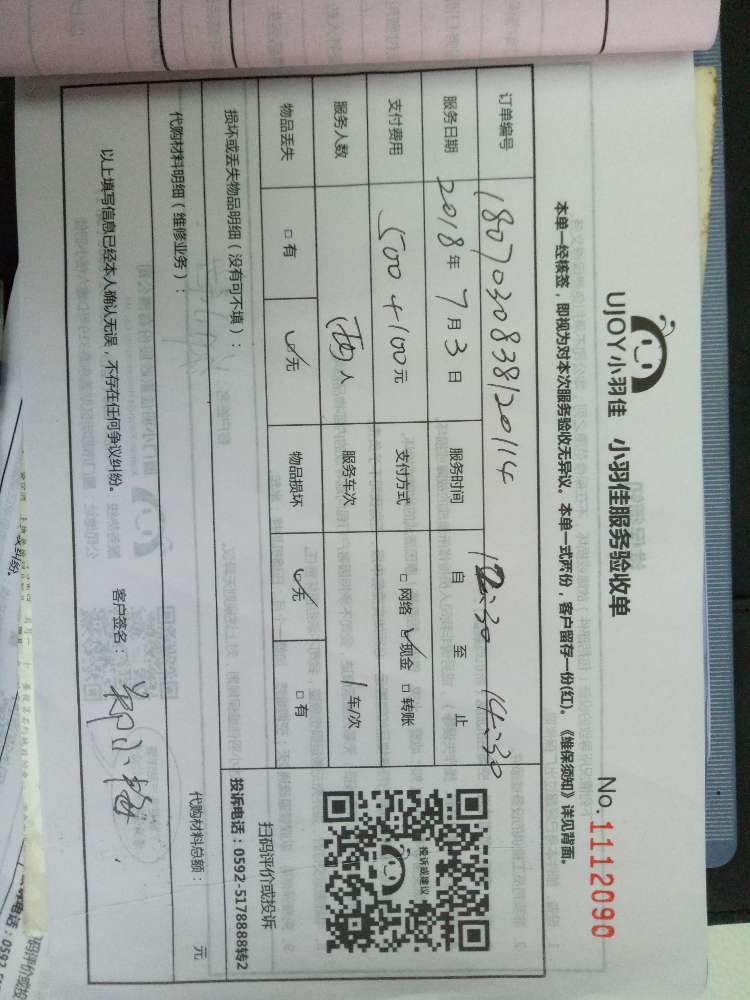 UJOY小羽佳 小羽佳服务验收单
No.1112090
本单一经核签，即视为对本次服务验收无异议。本单一式两份，客户留存一份(红)。《维保须知》详见背面。
订单编号 1807030838120114
服务日期 2018年7月3日 服务时间 自12:30至14:30止
支付费用 500+100元 支付方式 □网络 ☑现金 □转账
服务人数 (两)人 服务车次 1车/次
物品丢失 □有 ☑无 物品损坏 ☑无 □有
投诉或建议
扫码评价或投诉
投诉电话：0592-5178888转2
损坏或丢失物品明细（没有可不填）：
代购材料明细（维修业务）： 代购材料总额： 元
以上填写信息已经本人确认无误，不存在任何争议纠纷。 客户签名：